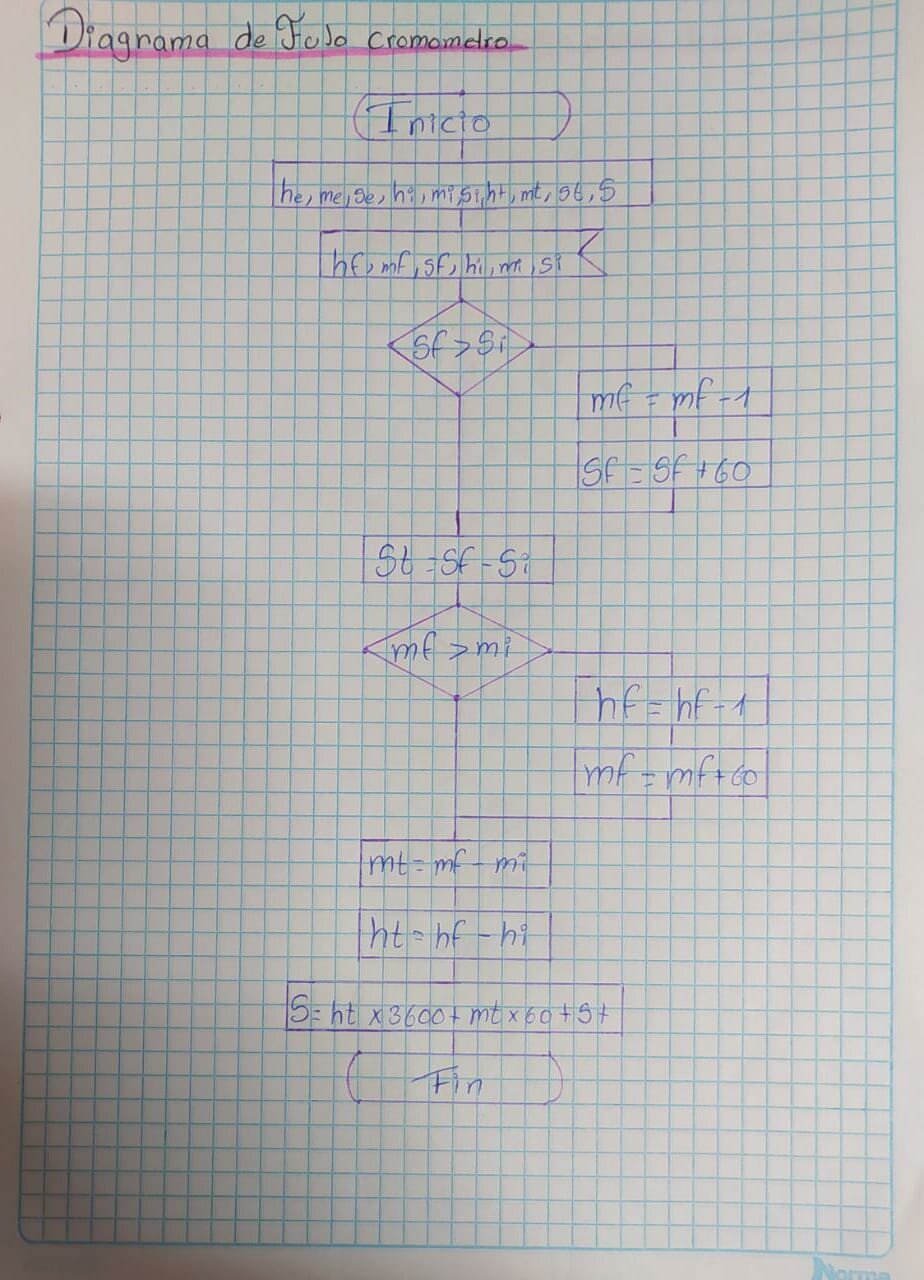 Diagrama de Fulo cromometro
Inicio
he, me, se, hi, mi, si, ht, mt, st, S
hf, mf, sf, hi, mi, si
Sf > Si
mf = mf - 1
Sf = Sf + 60
St = Sf - Si
mf > mi
hf = hf - 1
mf = mf + 60
mt = mf - mi
ht = hf - hi
S = ht x 3600 + mt x 60 + St
Fin
Norma